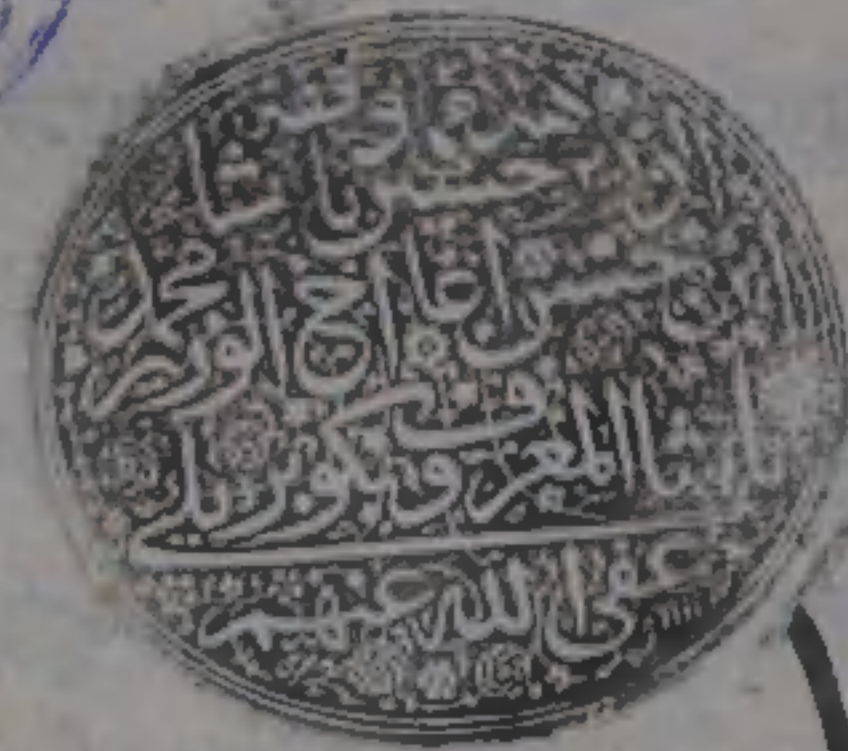 حسين پاشا
ابن حسن اغا اخ الوزير محمد
پاشا المعروف بكوپريلى
عفى الله عنهم